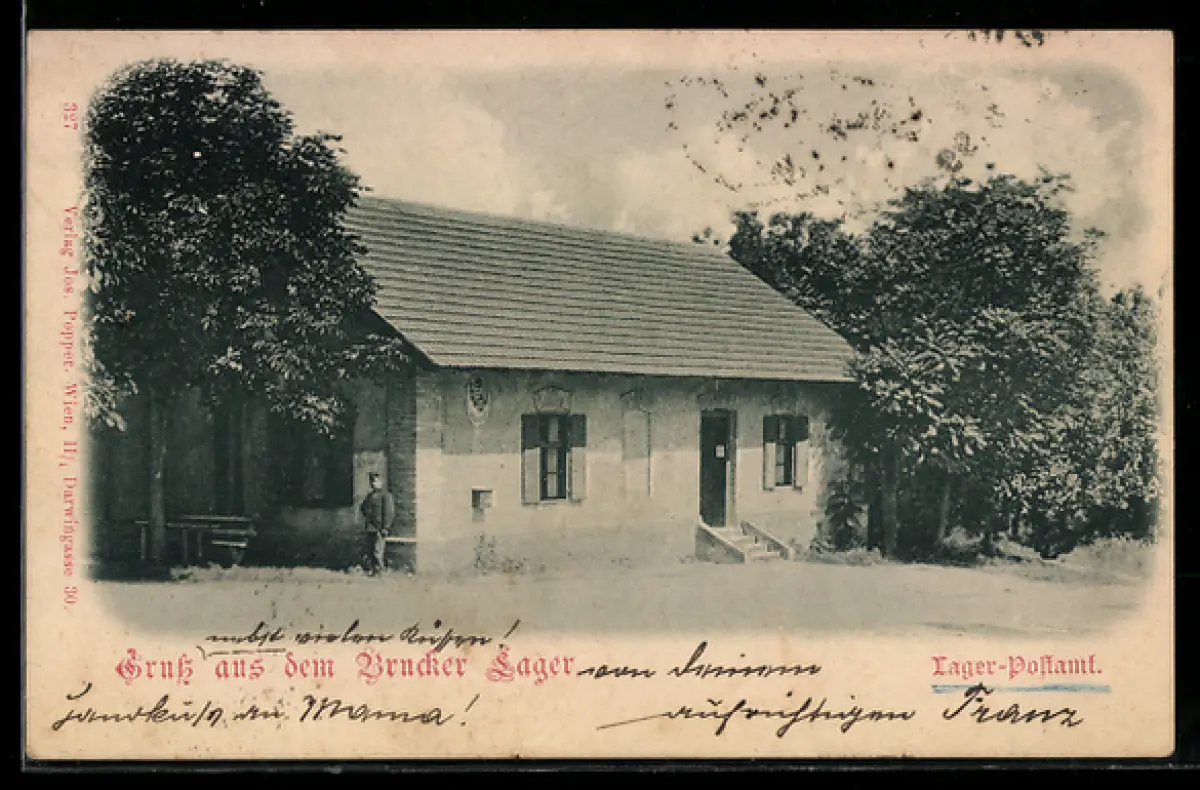 327 Verlag Jos. Popper. Wien, II/1 Darwingasse 30.
nebst vielen Küssen!
Gruß aus dem Brucker Lager von deinem
Handkuss an Mama!
aufrichtigen Franz
Lager-Postamt.